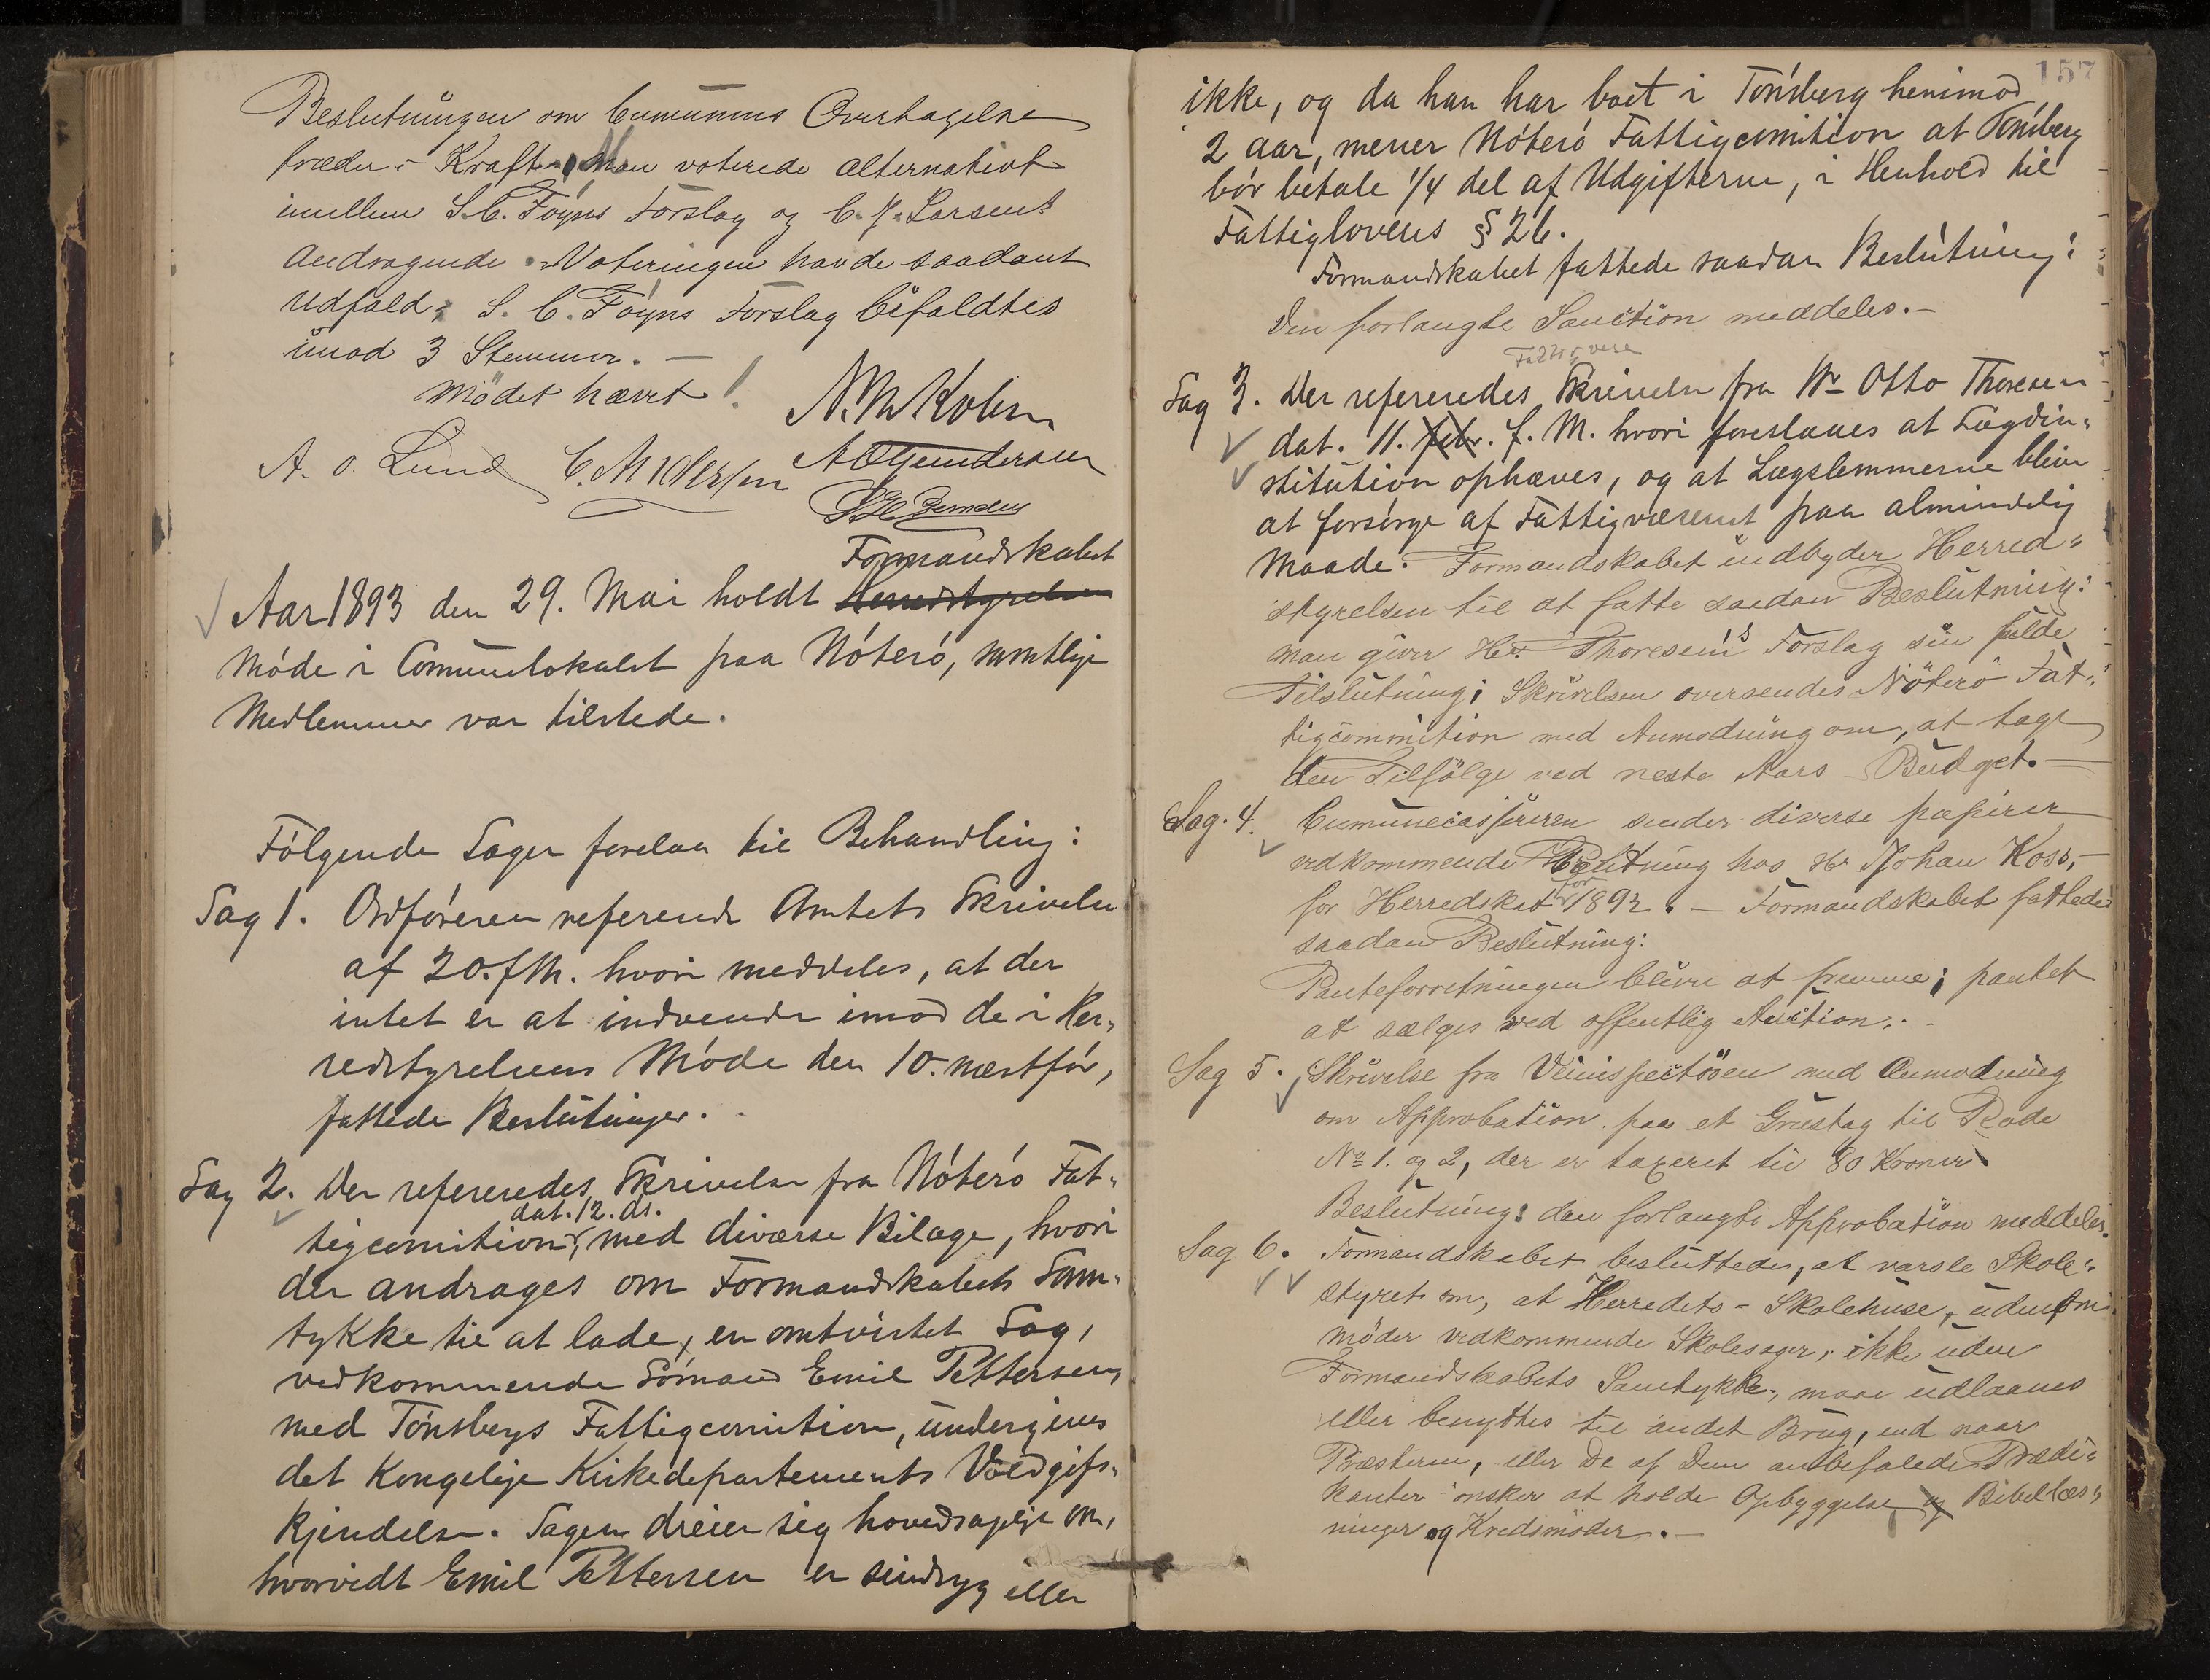 Beslutningen om Cumunens Overtagelse
træder i Kraft. Man voterede alternativt
imellem S. C. Føyns Forslag og C. J. Larsens
Andragende. Voteringen havde saadant
Udfald; S. C. Føyns Forslag bifaldtes
imod 3 Stemmer. —
Mødet hævet!
A. O. Lund C. Andersen
Formandskabet
Aar 1893 den 29. Mai holdt Herredstyrelsen
Møde i Comunelokalet paa Nøterø, samtlige
Medlemmer var tilstede.
Følgende Sager forelaa til Behandling:
Sag 1. Ordføreren referende Amtets Skrivelse
af 20. f. M. hvori meddeles, at der
intet er at indvende imod de i Her„
redstyrelsens Møde den 10. næstfør,
fattede Beslutninger.
Sag 2. Der refereredes Skrivelse fra Nøterø Fat„
dat. 12. ds.
tigcomition, med diverse Bilage, hvori
der andrages om Formandskabets Sam„
tykke til at lade, en omtvistet Sag,
vedkommende Sømand Emil Pettersen,
med Tønsbergs Fattigcomition, undergives
det Kongelige Kirkedepartements Voldgifs„
kjendelse. Sagen dreier sig hovedsagelige om,
hvorvidt Emil Pettersen er sindsyg eller
157
ikke, og da han har boet i Tønsberg henimod
2 aar, mener Nøterø Fattigcomition at Tønsberg
bør betale 1/4 del af Udgifterne, i Henhold til
Fattiglovens § 26.
Formandskabet fattede saadan Beslutning:
Den forlangte Sanction meddeles. —
Fattigvese
Sag 3. Der refereredes Skrivelse fra Hr Otto Thoresen
dat. 11. febr. f. M. hvori foreslaaes at Lægdin„
stitution ophæves, og at Lægslemmerne bliver
at forsørge af Fattigvæsenet paa almindelig
Maade. Formandskabet indbyder Herred„
styrelsen til at fatte saadan Beslutning:
man giver Hr Thoresen's Forslag sin fulde
Tilslutning; Skrivelsen oversendes Nøterø Fat„
tigcommition med Anmodning om, at tage
den Tilfølge ved neste Aars Budget. —
Sag. 4. Cumunecasséreren sender diverse papirer
vedkommende Pantning hos Hr Johan Koss, —
for
for Herredskat 1892. — Formandskabet fattede
saadan Beslutning:
Panteforretningen bliver at fremme; pantet
at sælges ved offentlig Auction.
Sag 5. Skrivelse fra Veiinspectøren med Anmodning
om Approbation paa et Grustag til Rode
No 1. og 2, der er taxeret til 80 Kroner.
Beslutning: den forlangte Approbation meddeles.
Sag 6. Formandskabet besluttede, at varsle Skole„
styret om, at Herredets - Skolehuse, udenom
møder vedkommende Skolesager, ikke uden
Formandskabets Samtykke, maa udlaanes
eller benyttes til andet Brug, end naar
Præsterne, eller De af Dem anbefalede Prædi„
kanter ønsker at holde Opbyggelse og Bibellæs„
ninger og Kredsmøder. —